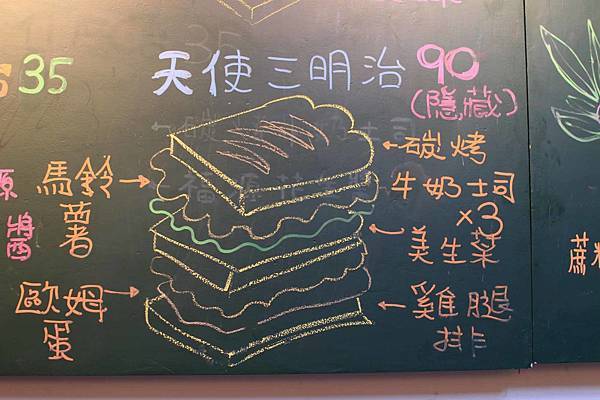 35
天使三明治 90
(隱藏)
碳烤
牛奶士司
×3
馬鈴
薯
美生菜
醬
歐姆
蛋
雞腿
排
蔗